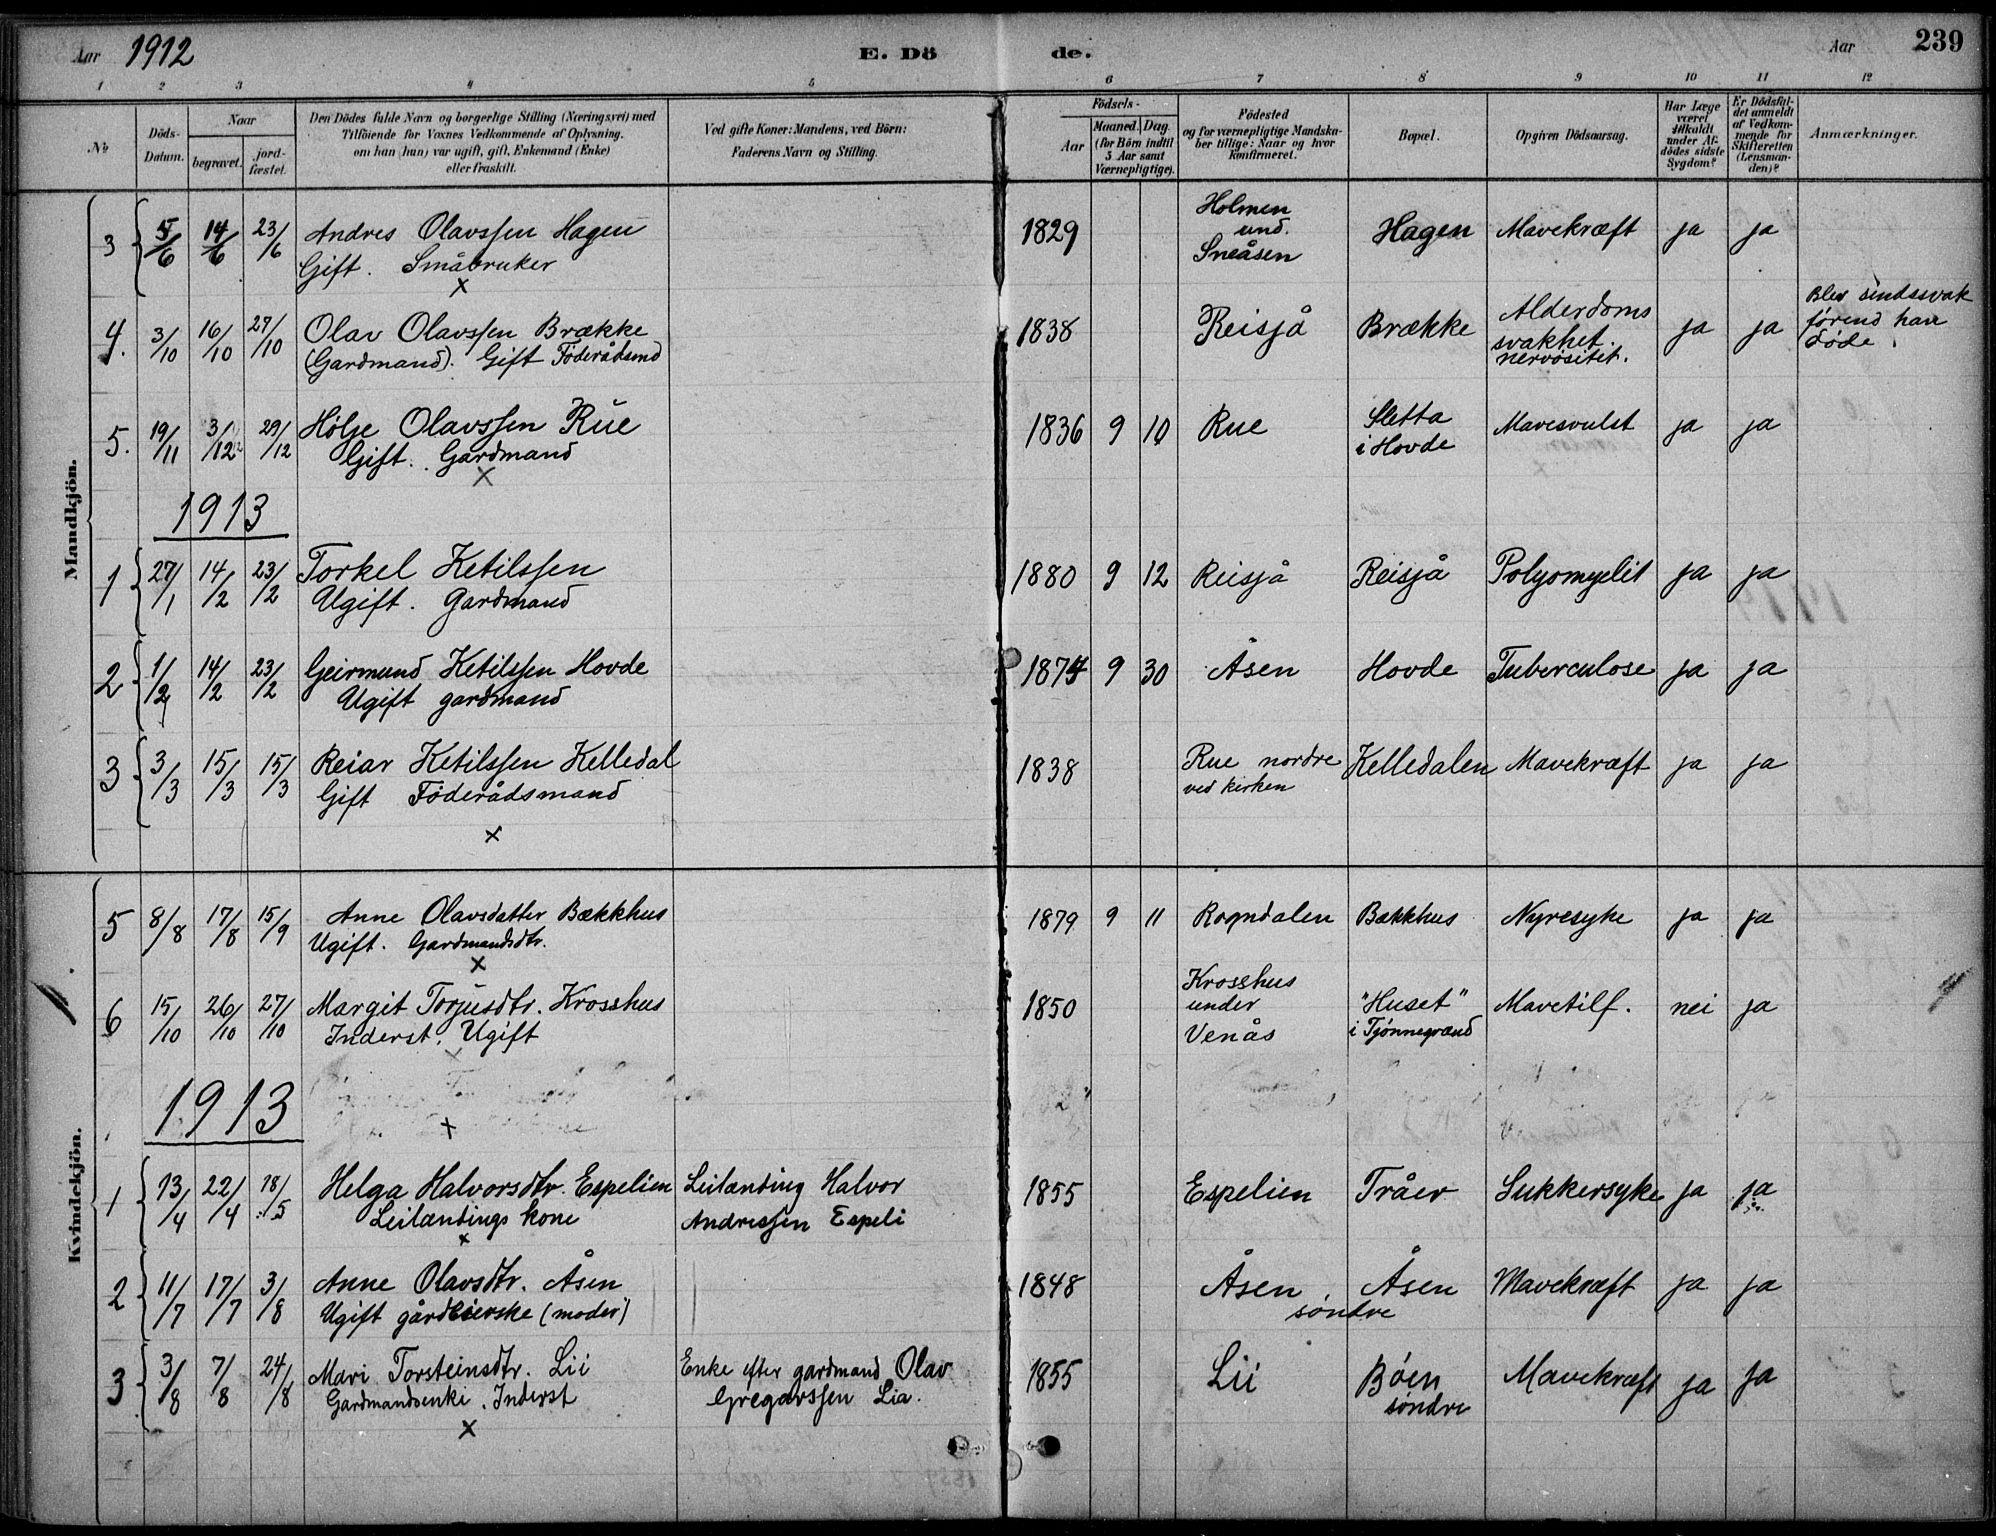 Aar 1912 E. Döde. Aar 239
1 2 3 4 5 6 7 8 9 10 11 12
No
Döds-Datum.
Naar
begravet.
jord-fæstet.
Den Dödes fulde Navn og borgerlige Stilling (Næringsvei) med
Tilföiende for Voxnes Vedkommende af Oplysning,
om han (hun) var ugift, gift, Enkemand (Enke)
eller fraskilt.
Ved gifte Koner: Mandens, ved Börn:
Faderens Navn og Stilling.
Födsels-
Aar
Maaned. Dag.
(for Börn indtil
5 Aar samt
Værnepligtige).
Födested
og for værnepligtige Mandska-
ber tillige: Naar og hvor
konfirmeret.
Bopæl.
Opgiven Dödsaarsag.
Har Læge
været
tilkaldt
under Af-
dödes sidste
Sygdom?
Er Dödsfal-
det anmeldt
af Vedkom-
mende for
Skifteretten
(Lensman-
den)?
Anmærkninger.
Mandkjön.
3 5/6 14/6 23/6 Andres Olavssen Hagen 1829 Holmen und. Sneåsen Hagen Mavekræft ja ja
Gift. Småbruker
x
4. 3/10 16/10 27/10 Olav Olavssen Brække 1838 Reisjå Brække Alderdoms svakhet. nervösitet. ja ja Blev sindssvak förend han döde.
(Gardmand). Gift Föderådsmd
5. 19/11 3/12 29/12 Hölje Olavssen Rue 1836 9 10 Rue Sletta i Hovde Mavesvulst ja ja
Gift. Gardmand
x
1913
1 27/1 14/2 23/2 Torkel Ketilssen 1880 9 12 Reisjå Reisjå Polyomyelit ja ja
Ugift. Gardmand
2 1/2 14/2 23/2 Geirmund Ketilssen Hovde 1874 9 30 Åsen Hovde Tuberculose ja ja
Ugift gardmand
3 3/3 15/3 15/3 Reiar Ketilssen Kelledal 1838 Rue nordre ved kirken Kelledalen Mavekræft ja ja
Gift Föderådsmand
x
Kvindekjön.
5 8/8 17/8 15/9 Anne Olavsdatter Bækkhus 1879 9 11 Rogndalen Bækkhus Nyresyke ja ja
Ugift. Gardmandsdtr.
x
6 15/10 26/10 27/10 Margit Torjusdtr. Krosshus 1850 Krosshus under Venås "Huset" i Tjönnegrænd Mavetilf. nei ja
Inderst. Ugift
1913
x
1 13/4 22/4 18/5 Helga Halvorsdtr. Espelien Leilænding Halvor 1855 Espelien Tråer Sukkersyke ja ja
Leilændings kone Andressen Espeli
x
2 11/7 17/7 3/8 Anne Olavsdtr. Åsen 1848 Åsen Åsen Mavekræft ja ja
Ugift gårdeierske (moder) söndre
3 3/8 7/8 24/8 Mari Torsteinsdtr. Lii Enke efter gardmand Olav 1855 Lii Böen söndre Mavekræft ja ja
Gardmandsenki. Inderst Gregarssen Lia.
x